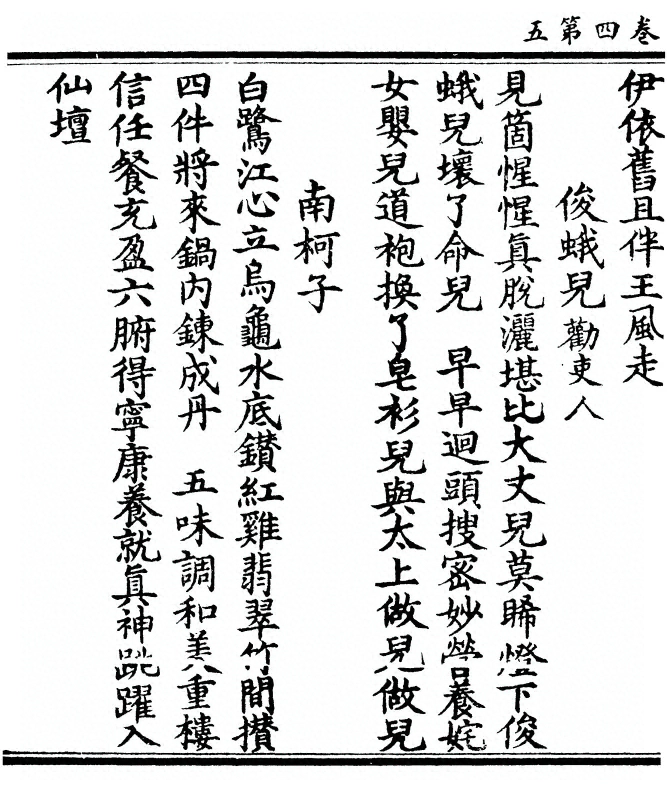 卷四第五
伊依舊且伴王風走
俊蛾兒 勸吏人
見箇惺惺眞脫灑堪比大丈兒莫睎燈下俊
蛾兒壞了命兒　早早迴頭搜密妙營養姹
女嬰兒道袍換了皂衫兒與太上做兒做兒
南柯子
白鷺江心立烏龜水底鑽紅雞翡翠竹間攅
四件將來鍋內鍊成丹　五味調和美重樓
信任餐充盈六腑得寧康養就眞神跳躍入
仙壇